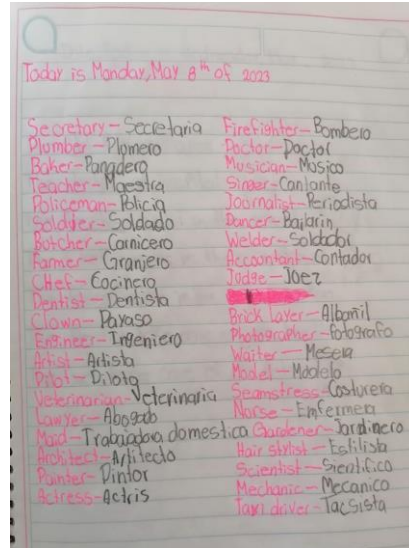 Today is Monday, May 8th of 2023
Secretary - Secretaria
Plumber - Plomero
Baker - Panadero
Teacher - Maestra
Policeman - Policia
Soldier - Soldado
Butcher - Carnicero
Farmer - Granjero
CHef - Cocinero
Dentist - Dentista
Clown - Payaso
Engineer - Ingeniero
Artist - Artista
Pilot - Pilota
Veterinarian - Veterinaria
Lawyer - Abogado
Maid - Trabajadora domestica
Architect - Arlitecto
Painter - Pintor
Actress - Actris
Firefighter - Bombero
Doctor - Doctor
Musician - Musico
Singer - Cantante
Journalist - Periodista
Dancer - Bailarin
Welder - Soldador
Accountant - Contador
Judge - Juez
Brick Layer - Albañil
Photographer - fotografo
Waiter - Mesera
Model - Modelo
Seamstress - Costurera
Nurse - Emfermera
Gardener - Jardinero
Hair stylist - Estilista
Scientist - Sientifico
Mechanic - Mecanico
Taxi driver - Tacsista